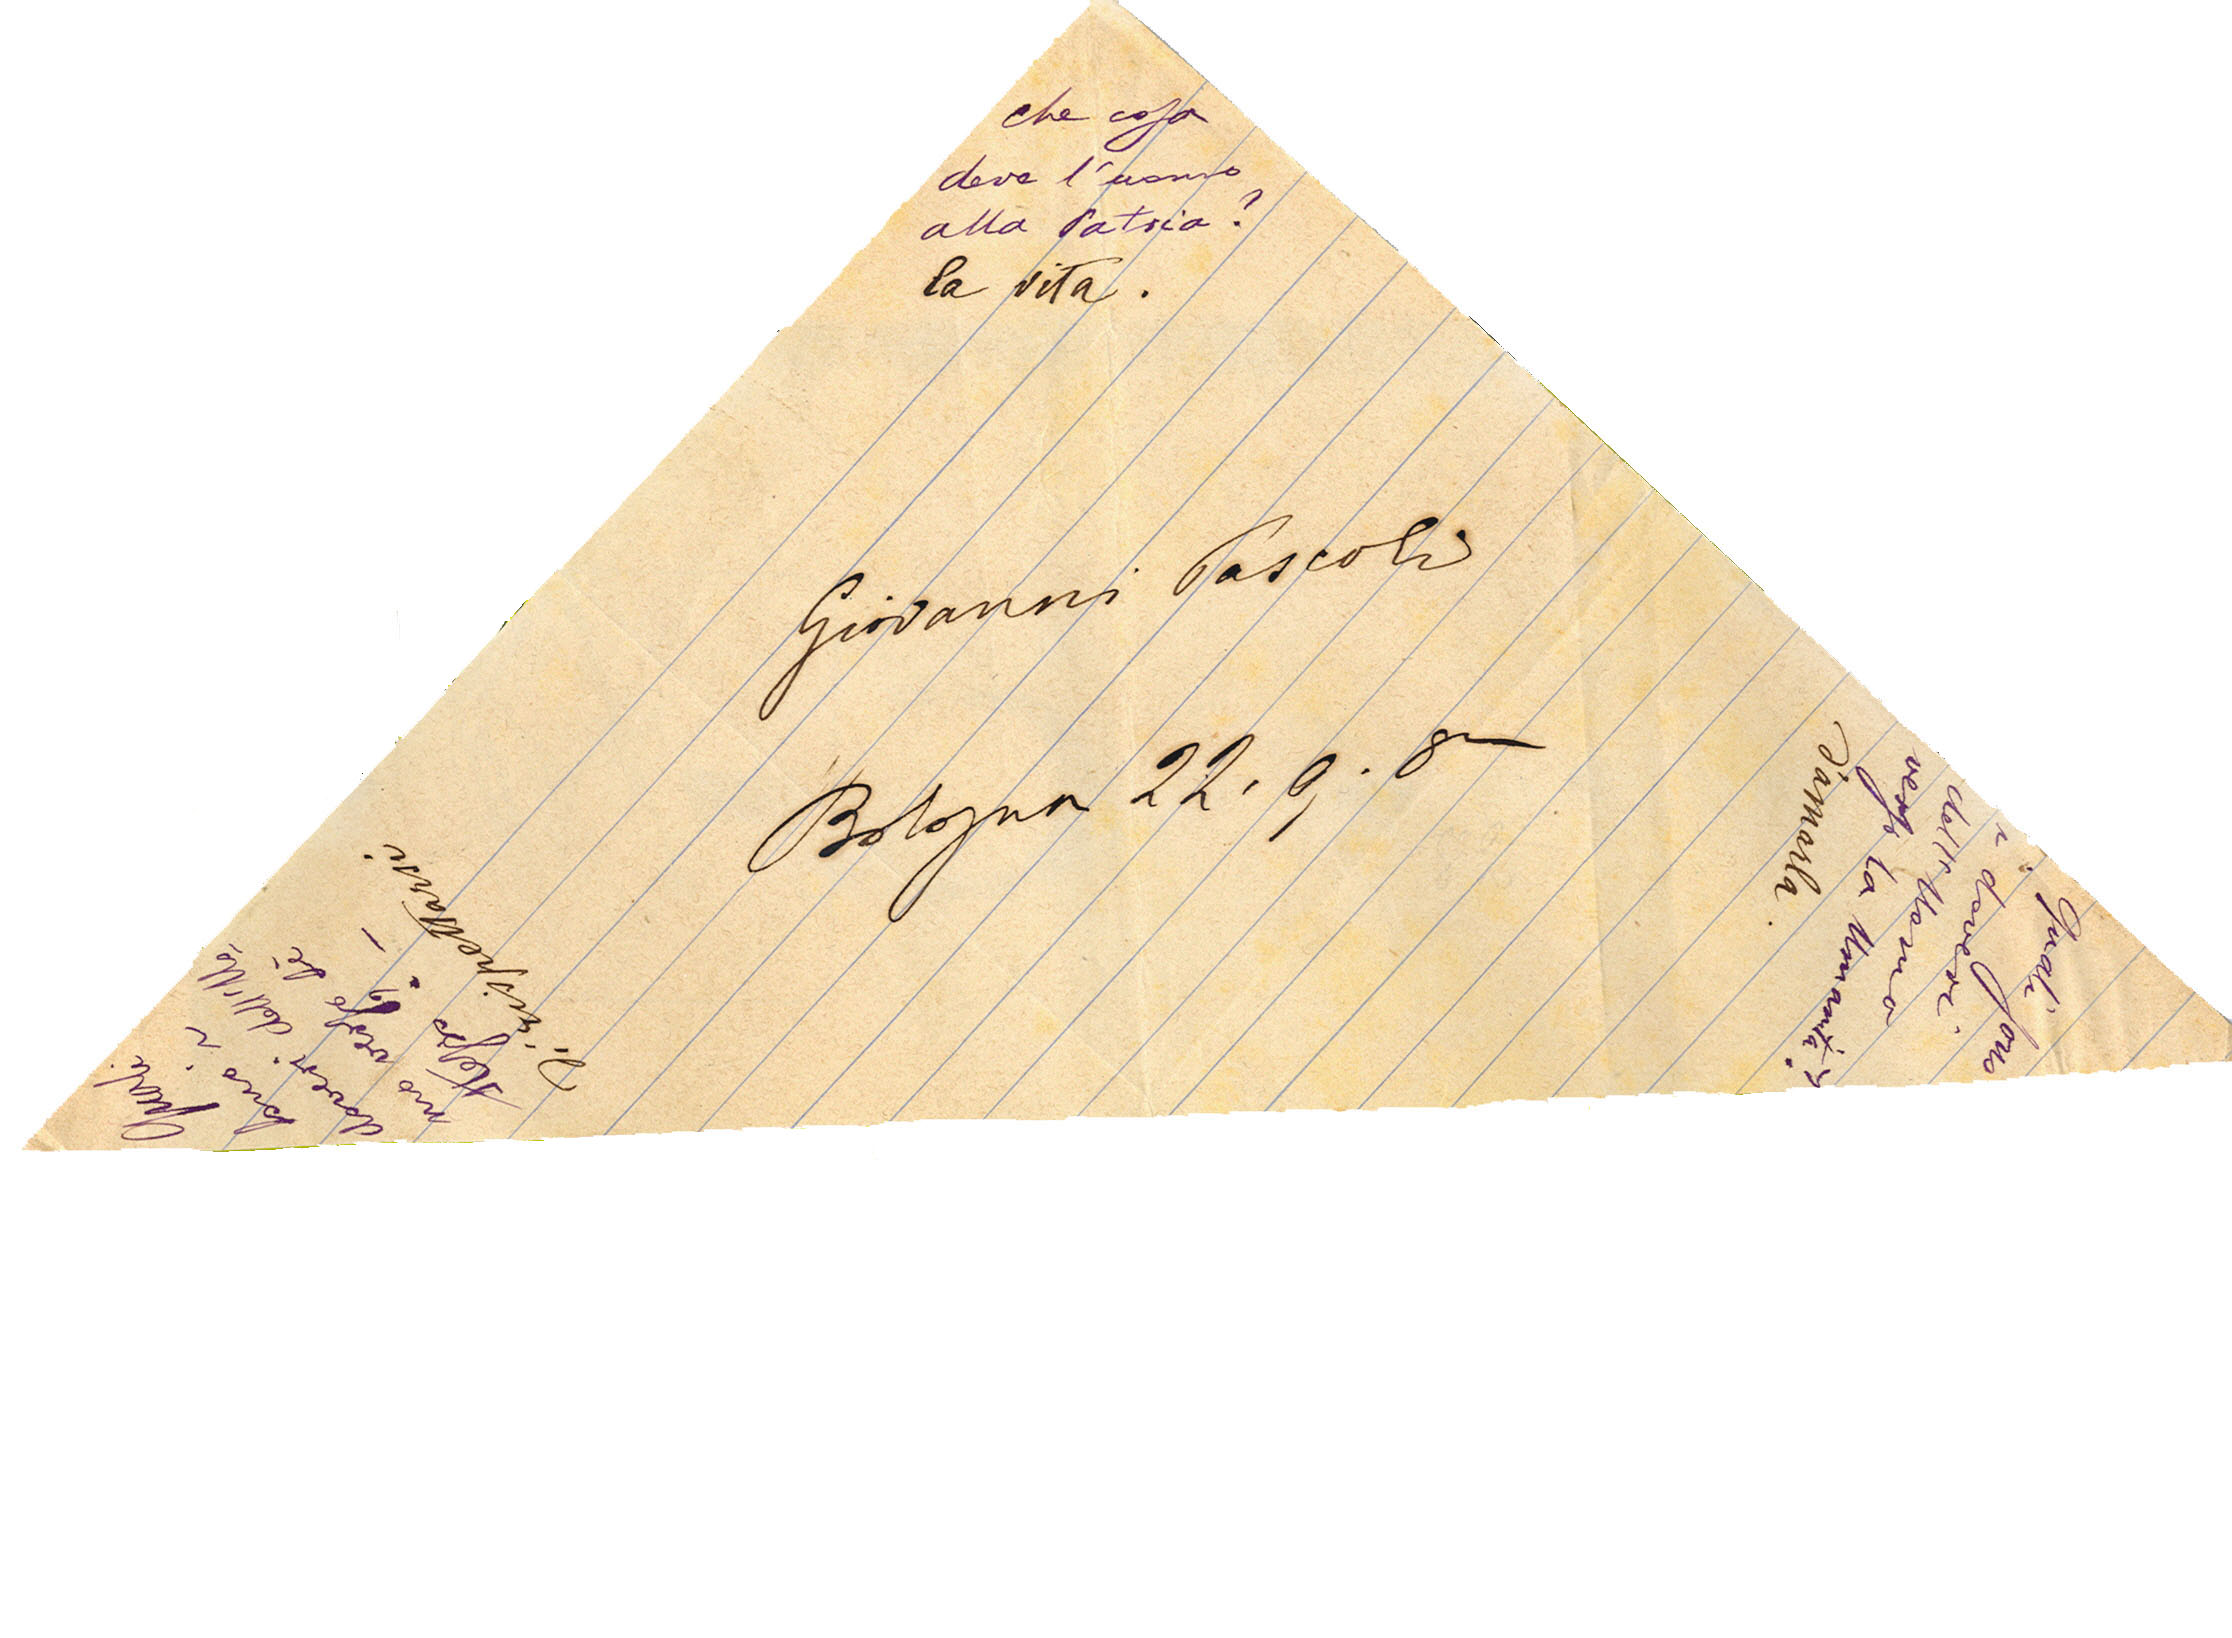 che cosa
deve l'uomo
alla Patria?
la vita.
Giovanni Pascoli
Bologna 22. 9. 8
Quali
sono i
doveri dell'Uo
mo verso di
stesso? –
Di rispettarsi
Quali sono
i doveri
dell'Uomo
verso la Umanità?
D'amarla.